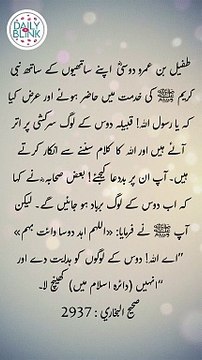 DAILY
BLINK
طفیل بن عمرو دوسیؓ اپنے ساتھیوں کے ساتھ نبی
کریم ﷺ کی خدمت میں حاضر ہوئے اور عرض کیا
کہ یا رسول اللہ! قبیلہ دوس کے لوگ سرکشی پر اتر
آئے ہیں اور اللہ کا کلام سننے سے انکار کرتے
ہیں۔ آپ ان پر بددعا کیجئے! بعض صحابہؓ نے کہا
کہ اب دوس کے لوگ برباد ہو جائیں گے۔ لیکن
آپ ﷺ نے فرمایا: «اللهم اهد دوسا وائت بهم»
"اے اللہ! دوس کے لوگوں کو ہدایت دے اور
انہیں (دائرہ اسلام میں) کھینچ لا۔"
صحیح البخاری : 2937